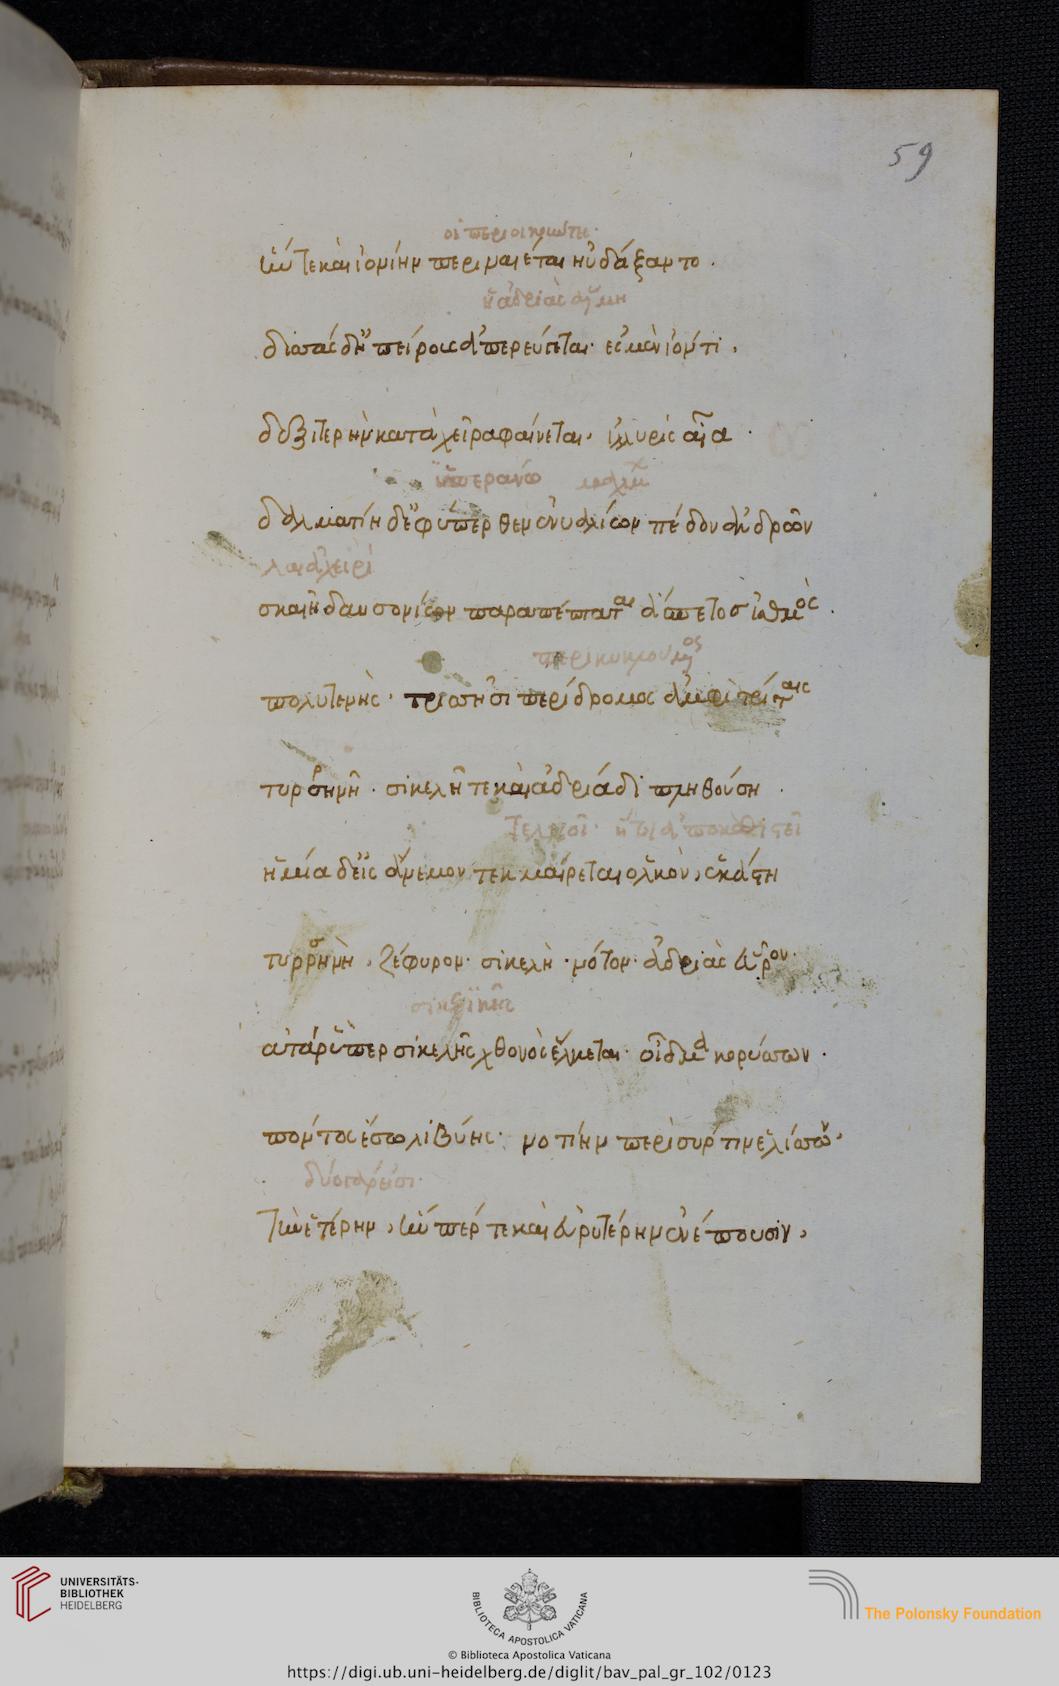 59
οἱ περιοικιῶται·
ἥν τε καὶ ἰονίην περιναιέται ηὐδάξαντο.
ἡ ἀδριὰς ἅλμη
δισσὰς δ' ἠπείρους ἀπερεύγεται· ἐς μὲν ἰόντι,
δεξιτερὴν κατὰ χεῖρα φαίνεται, ἰλλυρὶς αἶα.
ὑπεράνω
δαλματίη δ' ἐφύπερθεν ἐνυαλίων πέδον ἀνδρῶν
σκαιῇ δ' αὐσονίων παραπέπταται ἄσπετος ἰσθμός.
πολυτενής· τρισσῇσι περίδρομος ἀμφιτρίταις
τυρσηνῇ· σικελῇ τε καὶ ἀδριάδι πληθούσῃ.
ἡμία δ' εἰς ἄνεμον τεκμαίρεται ὁλκὸν, ἑκάστη
τυρρηνὴ, ζέφυρον· σικελὴ· νότον· ἀδριὰς εὖρον.
αὐτὰρ ὕπερ σικελῆς χθονὸς ἕλκεται· οἶδμα κορύσσων.
πόντος ἔσω λιβύης· νοτίην περὶ σύρτιν ἑλίσσων·
τὴν ἑτέρην, ἥν πέρ τε καὶ εὐρυτέρην ἐνέπουσιν,
UNIVERSITÄTS-
BIBLIOTHEK
HEIDELBERG
BIBLIOTECA APOSTOLICA VATICANA
The Polonsky Foundation
© Biblioteca Apostolica Vaticana
https://digi.ub.uni-heidelberg.de/diglit/bav_pal_gr_102/0123